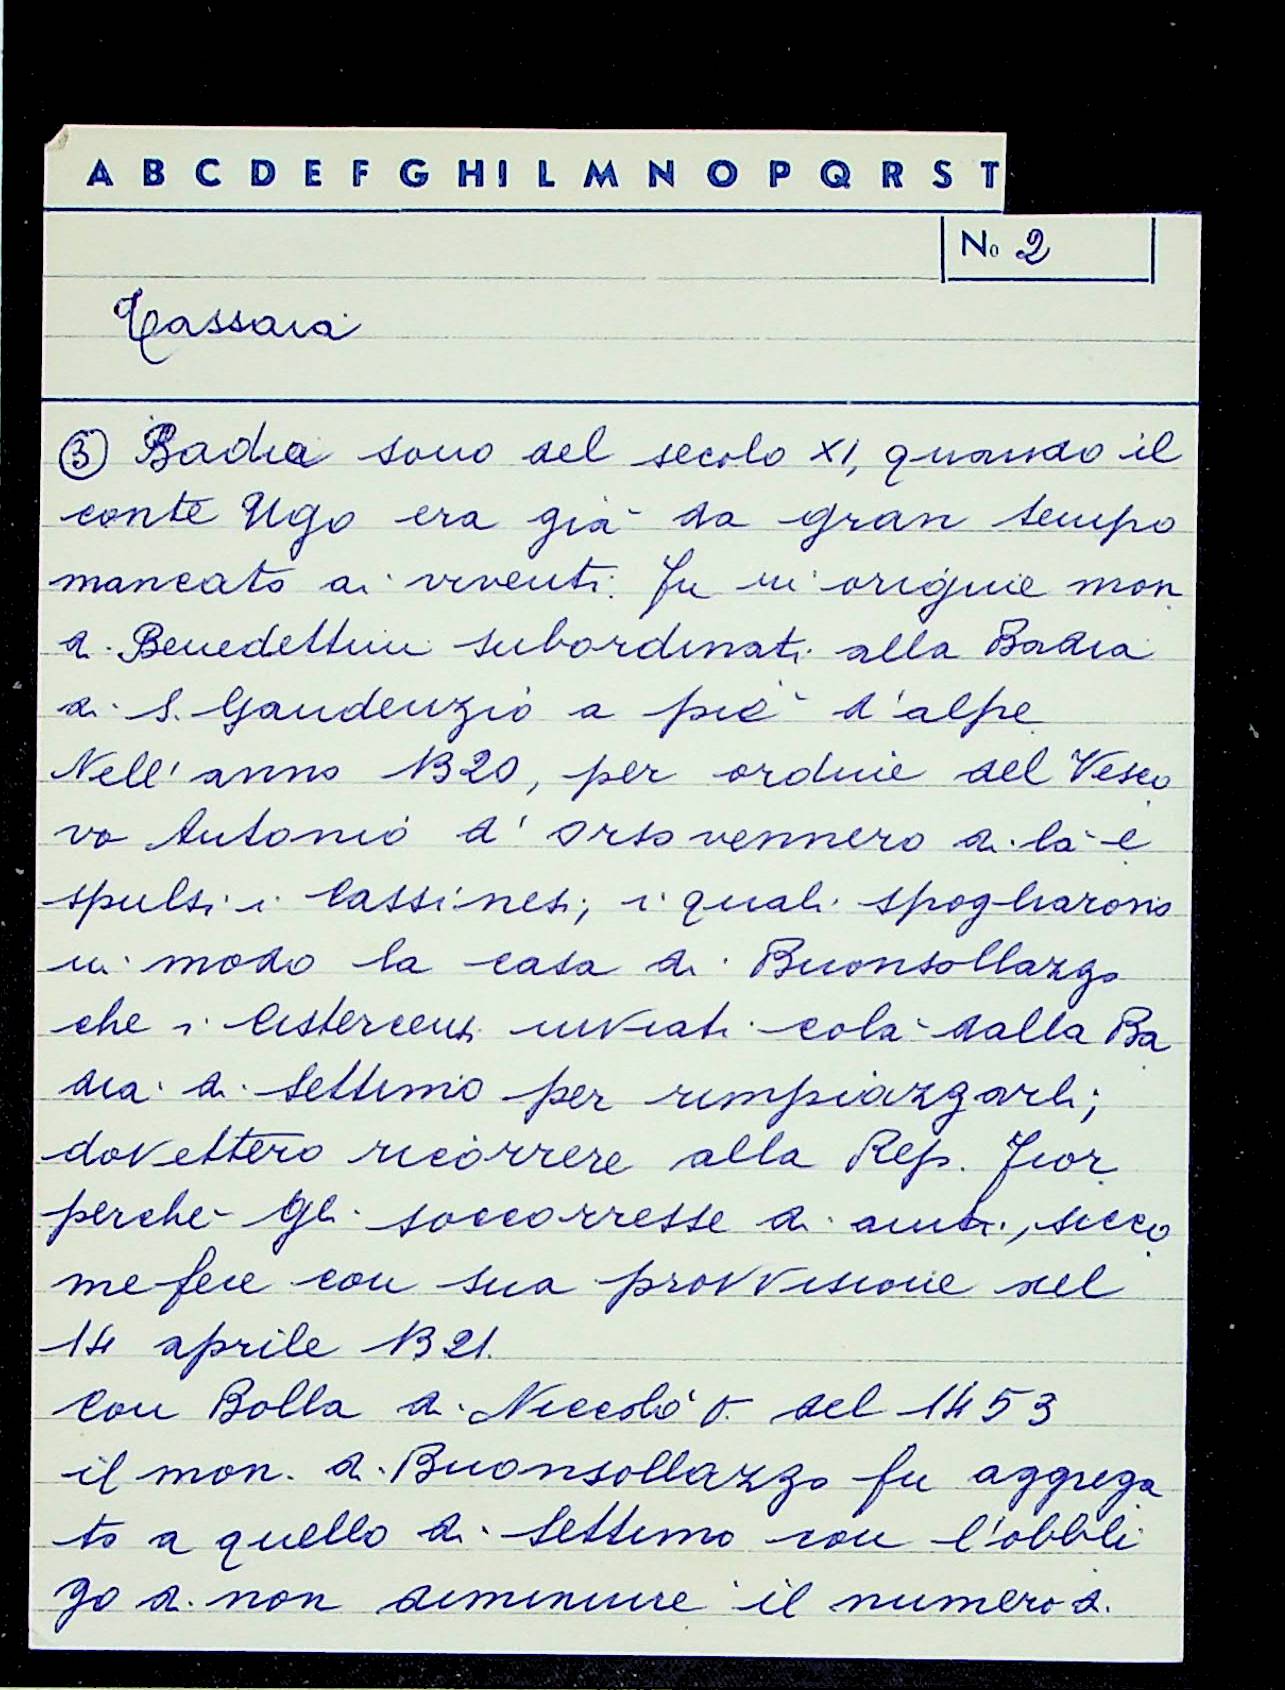 A B C D E F G H I L M N O P Q R S T
No 2
Tassaia
3 Badia sono del secolo XI, quando il
conte Ugo era già da gran tempo
mancato ai viventi. Fu in origine mon.
di Benedettini subordinati alla Badia
di S. Gaudenzio a piè d'alpe
Nell'anno 1320, per ordine del Vesco
vo Antonio d'Orso vennero di là e
spulsi i Cassinesi; i quali spogliarono
in modo la casa di Buonsollazzo
che i Cistercensi inviati colà dalla Ba
dia di Settimo per rimpiazzarli;
dovettero ricorrere alla Rep. Fior.
perché gli soccorresse di aiuti, sicco
me fece con sua provvisione del
14 aprile 1321.
Con Bolla di Niccolò V. del 1453
il mon. di Buonsollazzo fu aggrega
to a quello di Settimo con l'obbli
go di non diminuire il numero di